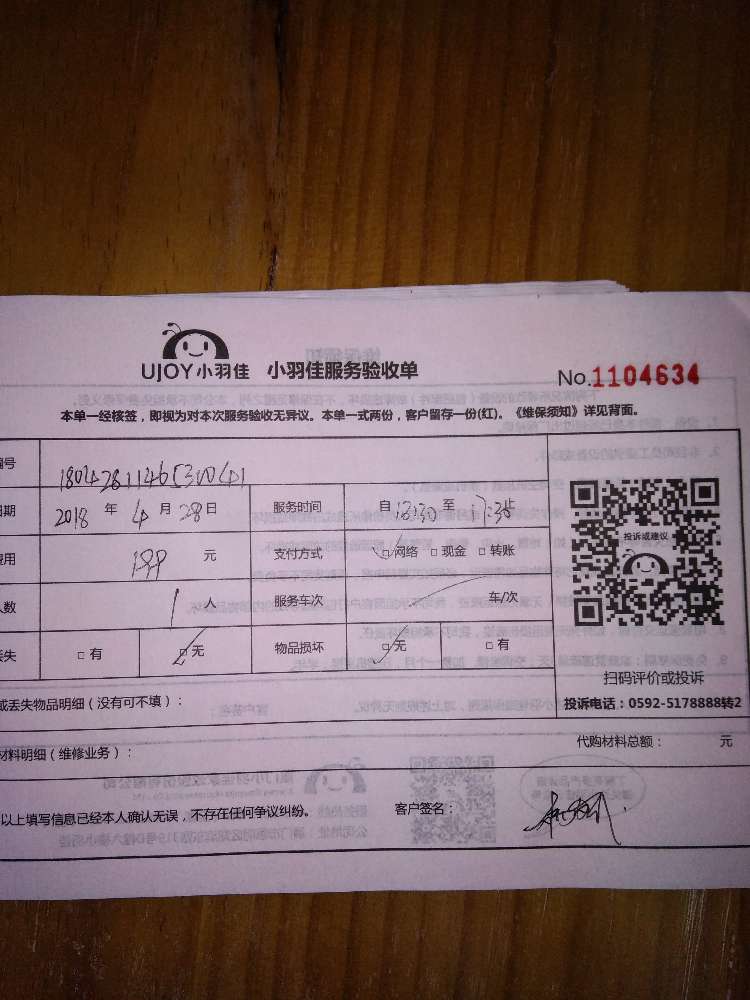 UJOY小羽佳 小羽佳服务验收单
No.1104634
本单一经核签，即视为对本次服务验收无异议。本单一式两份，客户留存一份(红)。《维保须知》详见背面。
号
期 2018 年 4 月 28 日 服务时间 自 13:30 至
用 199 元 支付方式 □网络 □现金 □转账
人数 1 人 服务车次 车/次
丢失 □有 □无 物品损坏 □无 □有
投诉或建议
扫码评价或投诉
投诉电话：0592-5178888转2
或丢失物品明细（没有可不填）：
材料明细（维修业务）： 代购材料总额： 元
以上填写信息已经本人确认无误，不存在任何争议纠纷。 客户签名：